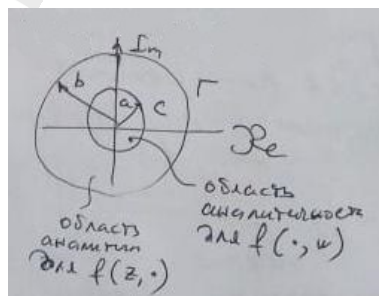 Im
b
Γ
a
C
Re
область
аналитичность
для f(·, w)
область
аналитич
для f(z, ·)